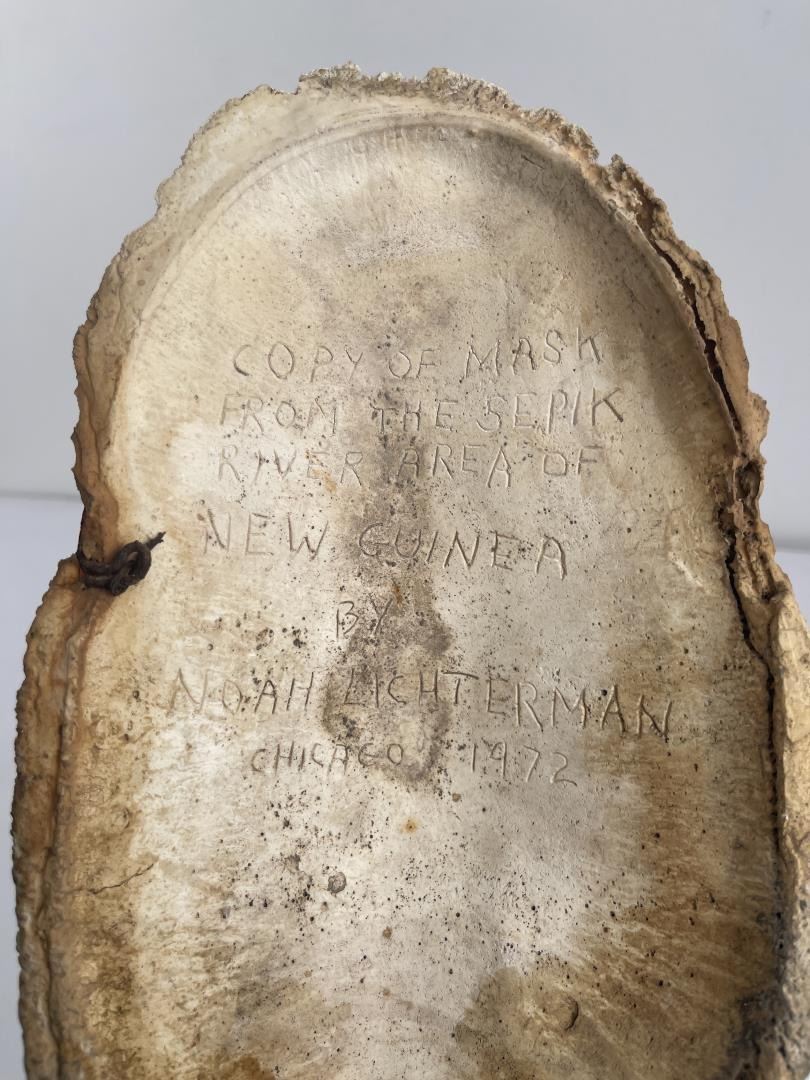 COPY OF MASK
FROM THE SEPIK
RIVER AREA OF
NEW GUINEA
BY
NOAH LICHTERMAN
CHICAGO 1972